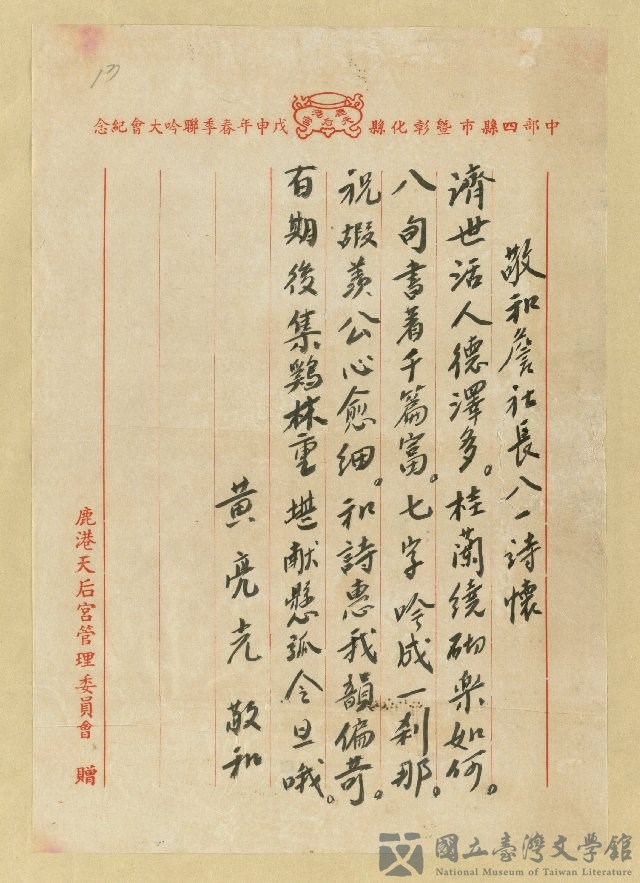 中部四縣市暨彰化縣 戊申年春季聯吟大會紀念
敬和詹社長八一詩懷
濟世活人德澤多。桂蘭繞砌樂如何。
八旬書着千篇富。七字吟成一剎那。
祝嘏羨公心愈細。和詩惠我韻偏奇。
百期後集鷄林重堪献懸弧今旦哦。
黃亮光 敬和
鹿港天后宮管理委員會 贈
國立臺灣文學館
National Museum of Taiwan Literature